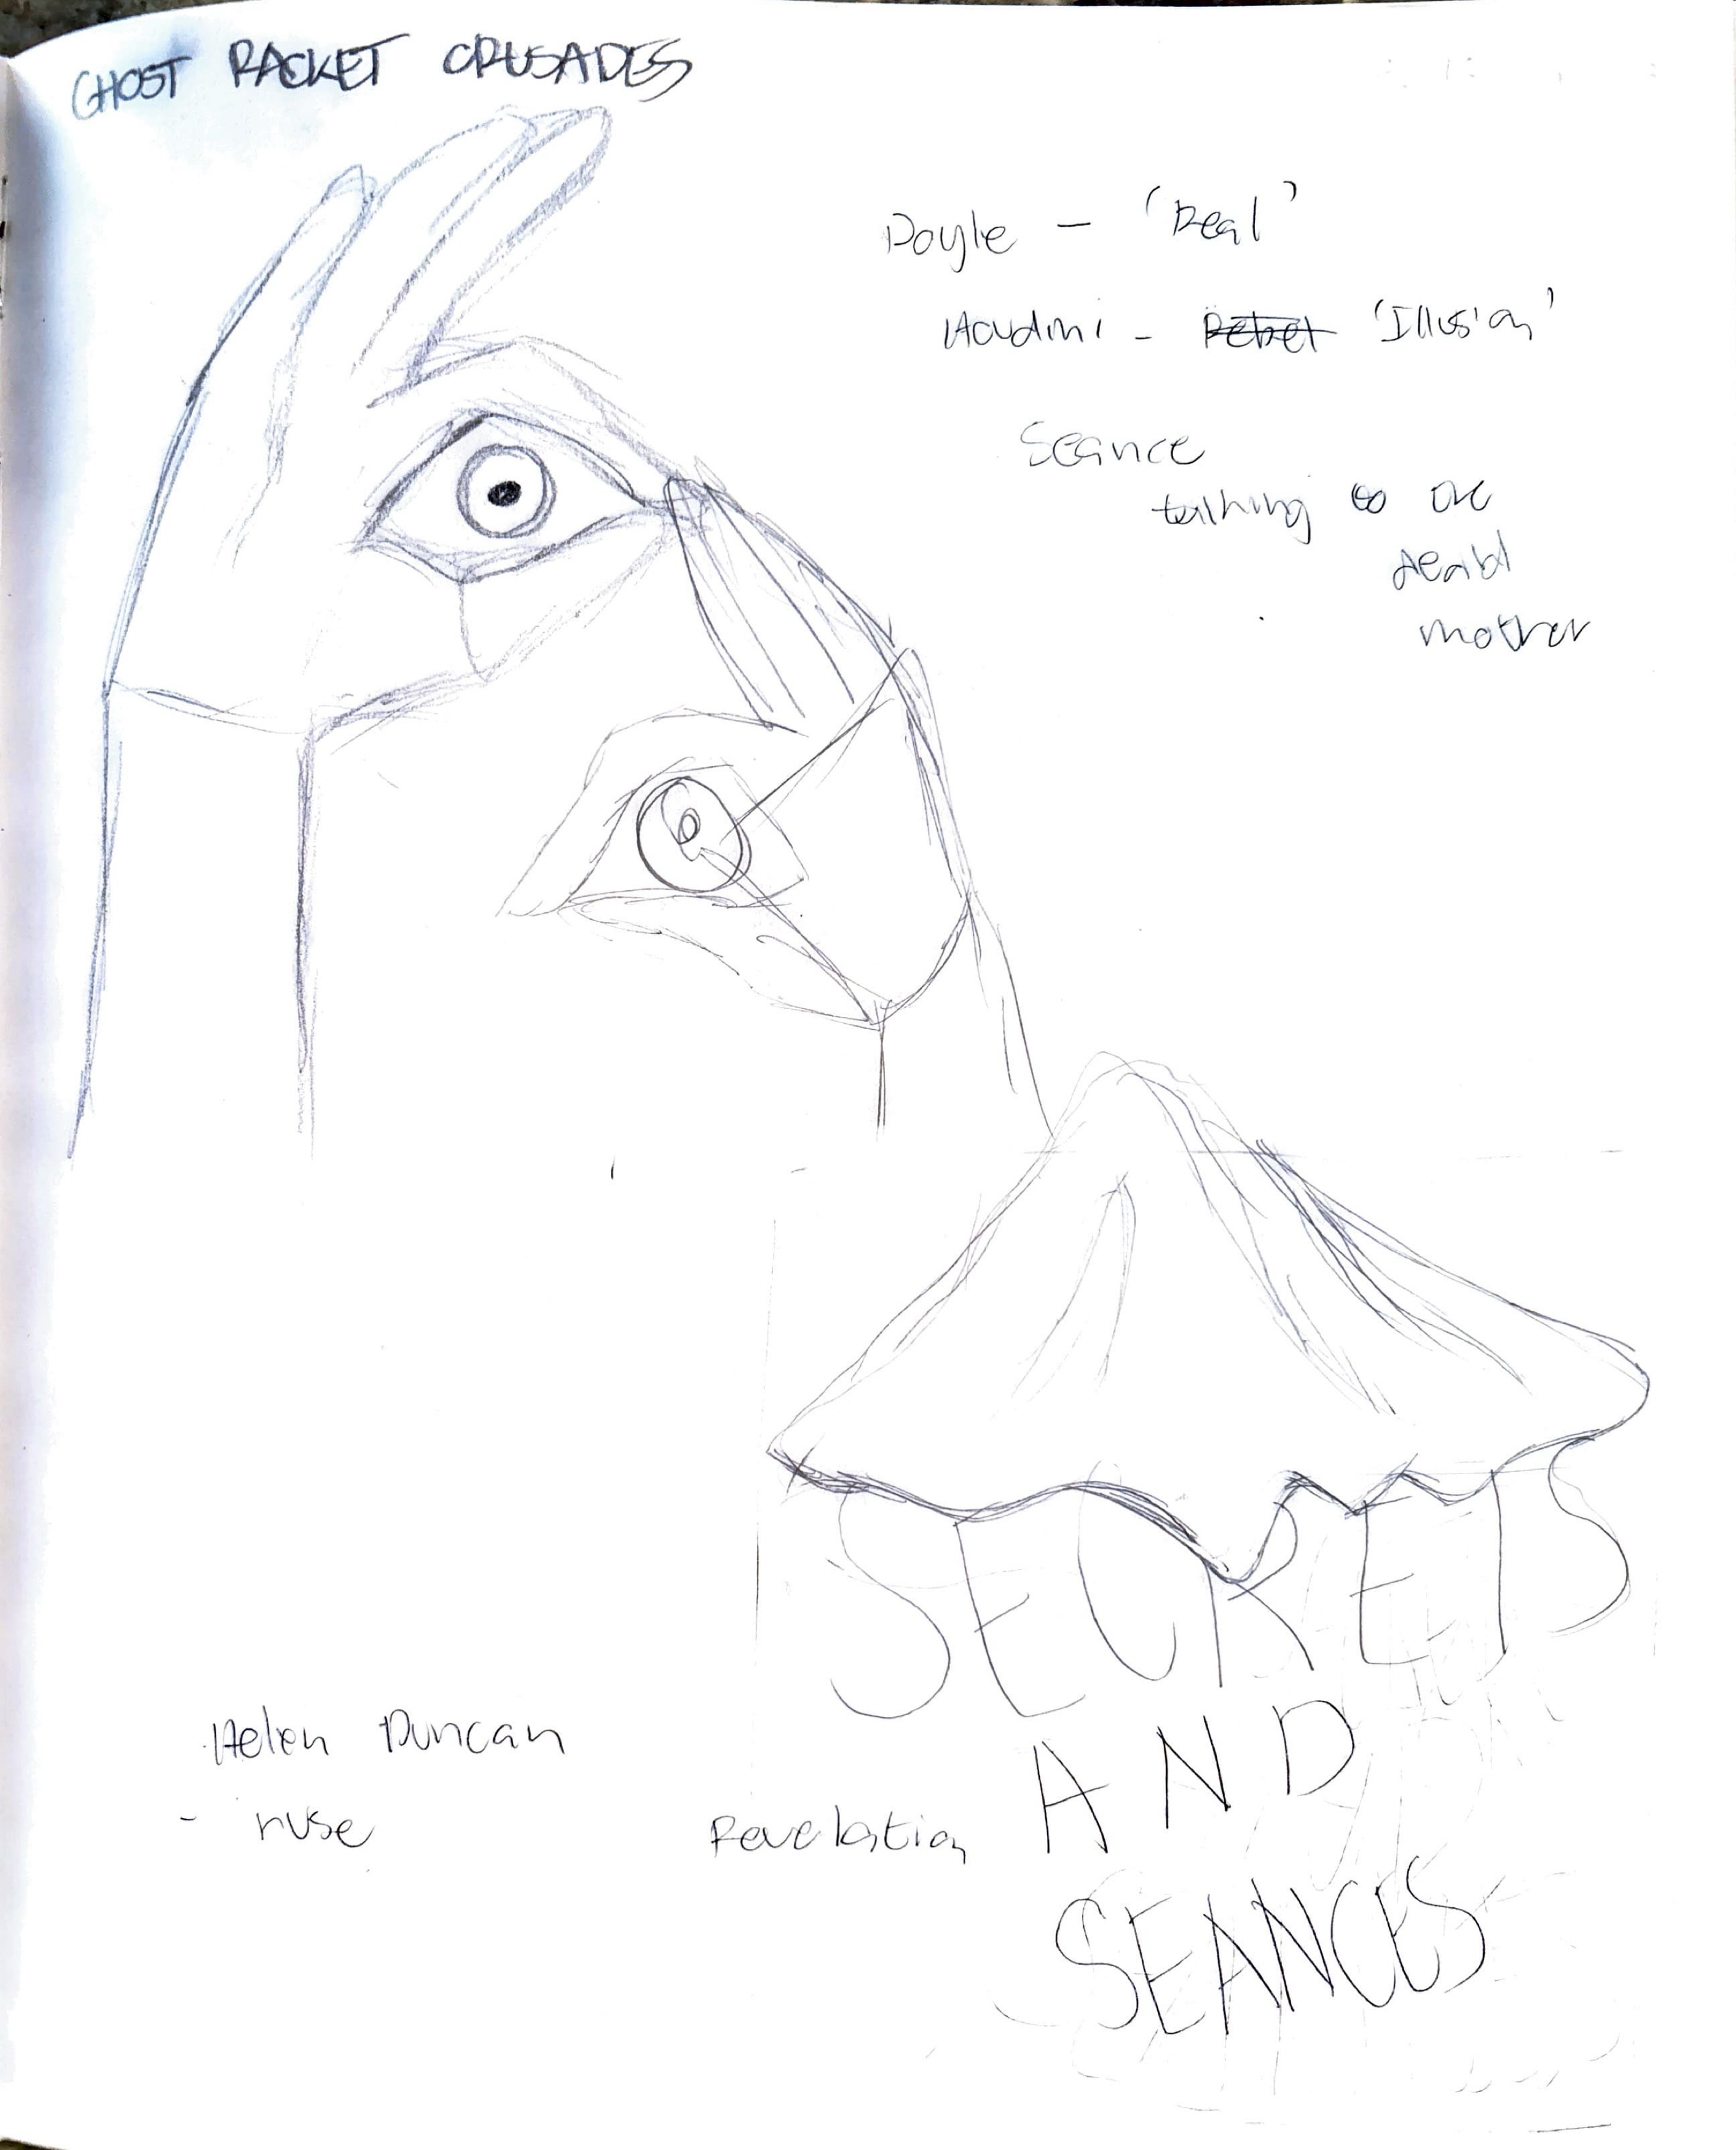 GHOST RACKET CRUSADES
Doyle - 'Real'
Houdini - 'Illusion'
Seance
talking to
dead
mother
SECRETS
AND
SEANCES
Helen Duncan
- ruse
Revelation